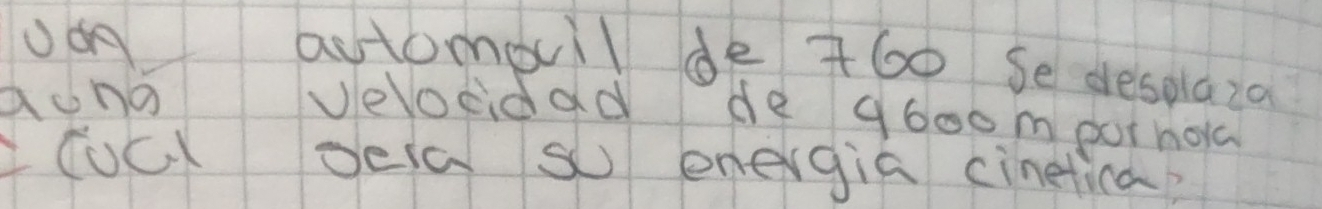 Un automovil de 760 se desplaza
a una velocidad de 9600 m por hora
Cual sera su energia cinetica?